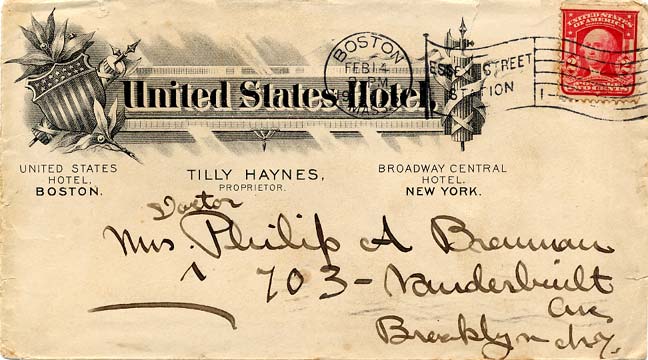 UNITED STATES
OF AMERICA
TWO CENTS
BOSTON
FEB 14
MASS
STREET
STATION
United States Hotel,
UNITED STATES
HOTEL,
BOSTON.
TILLY HAYNES,
PROPRIETOR.
BROADWAY CENTRAL
HOTEL.
NEW YORK.
Doctor
Mrs. Philip A Brennan
703 - Vanderbuilt
Ave
Brooklyn N.Y.